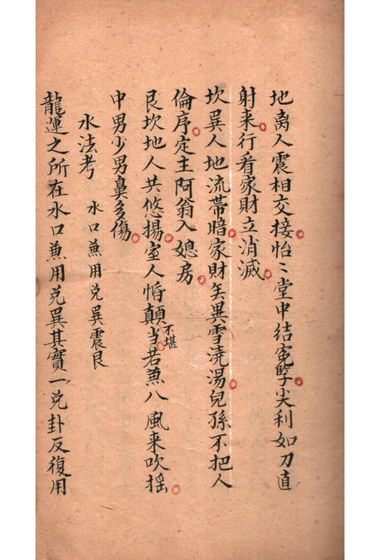 地离人震相交接怡〻堂中结寃孽尖利如刀直
射来行看家財立消滅
坎巽人地流带暗家財矣異雪澆湯兒孫不把人
倫序定主阿翁入媳房
艮坎地人共悠揚室人悄顛不堪当若兼八風来吹摇
中男少男鼻多傷
水法考 水口兼用兑巽震艮
龍運之所在水口兼用兑巽其實一兑卦反復用